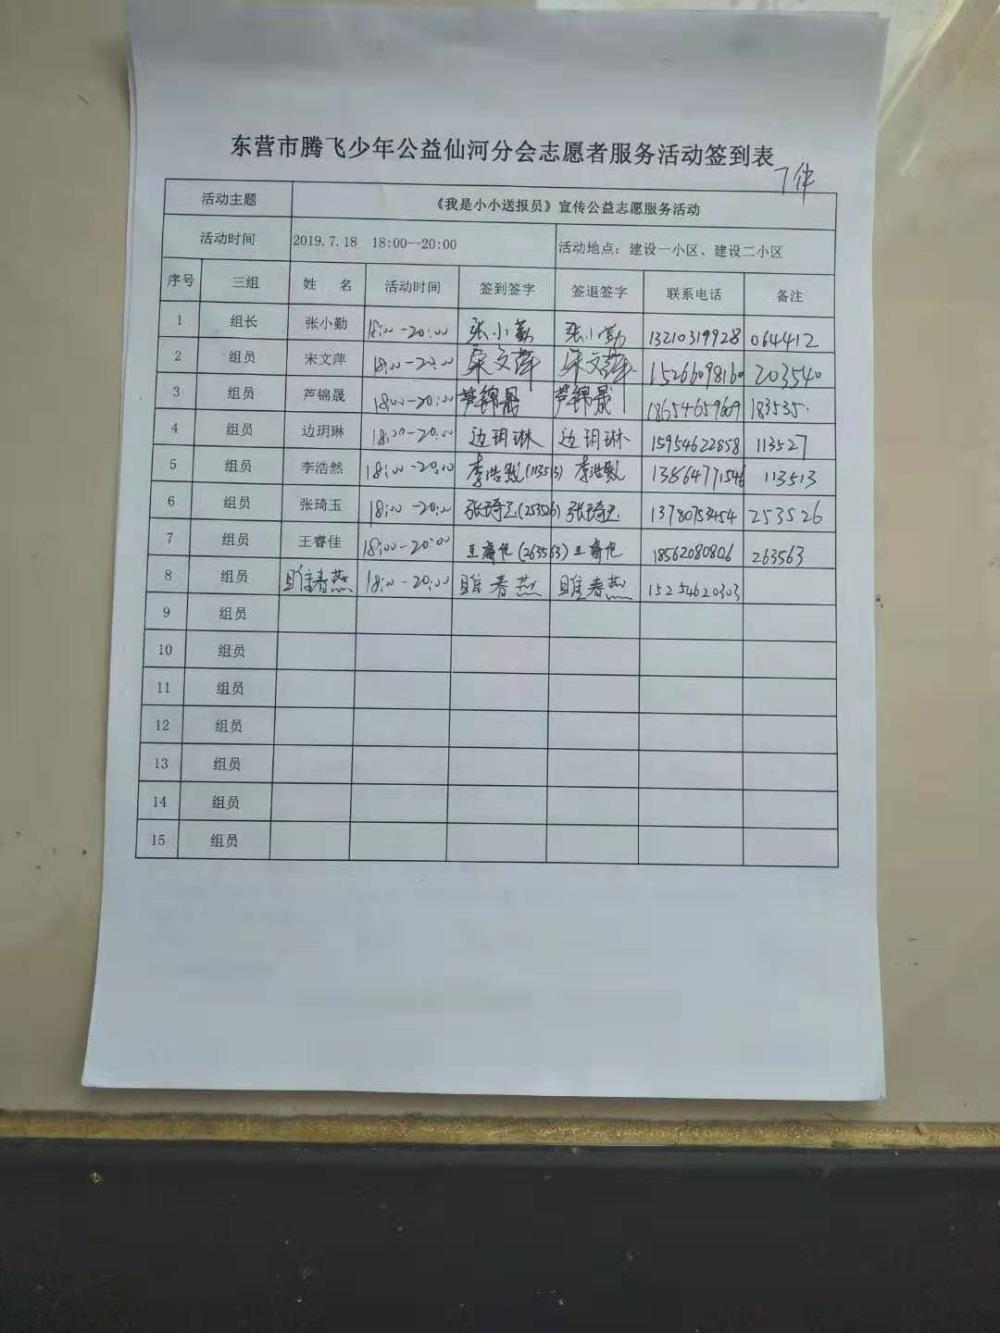 东营市腾飞少年公益仙河分会志愿者服务活动签到表
7件
活动主题 《我是小小送报员》宣传公益志愿服务活动
活动时间 2019.7.18 18:00--20:00 活动地点：建设一小区、建设二小区
序号 三组 姓 名 活动时间 签到签字 签退签字 联系电话 备注
1 组长 张小勤 18:00-20:00 张小勤 张小勤 13210319928 064412
2 组员 宋文萍 18:00-20:00 宋文萍 宋文萍 15266098160 203540
3 组员 芦锦晟 18:00-20:00 芦锦晟 芦锦晟 18654659669 183535.
4 组员 边玥琳 18:00-20:00 边玥琳 边玥琳 15954622858 113527
5 组员 李浩然 18:00-20:00 李浩然(113513) 李浩然 13864771546 113513
6 组员 张琦玉 18:00-20:00 张琦玉(253526) 张琦玉 13780753454 253526
7 组员 王睿佳 18:00-20:00 王睿佳(263563) 王睿佳 18562080806 263563
8 组员 睢春燕 18:00-20:00 睢春燕 睢春燕 15254620303
9 组员
10 组员
11 组员
12 组员
13 组员
14 组员
15 组员